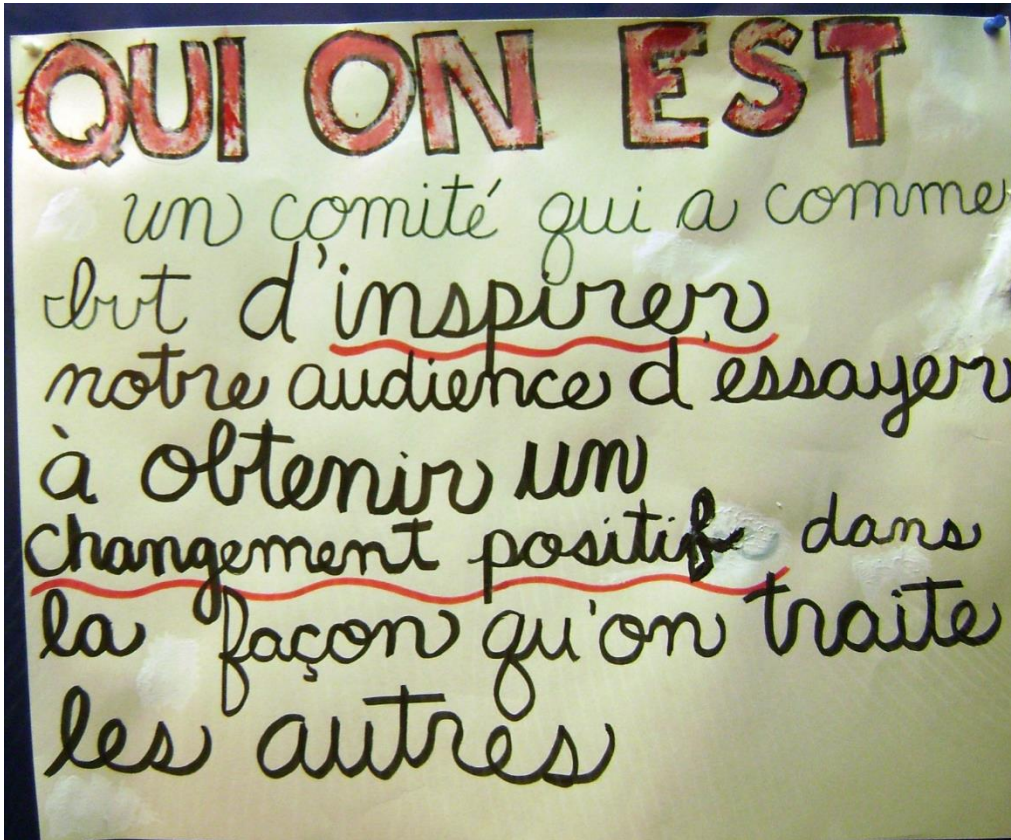 QUI ON EST
un comité qui a comme
but d'inspirer
notre audience d'essayer
à obtenir un
changement positif dans
la façon qu'on traite
les autres